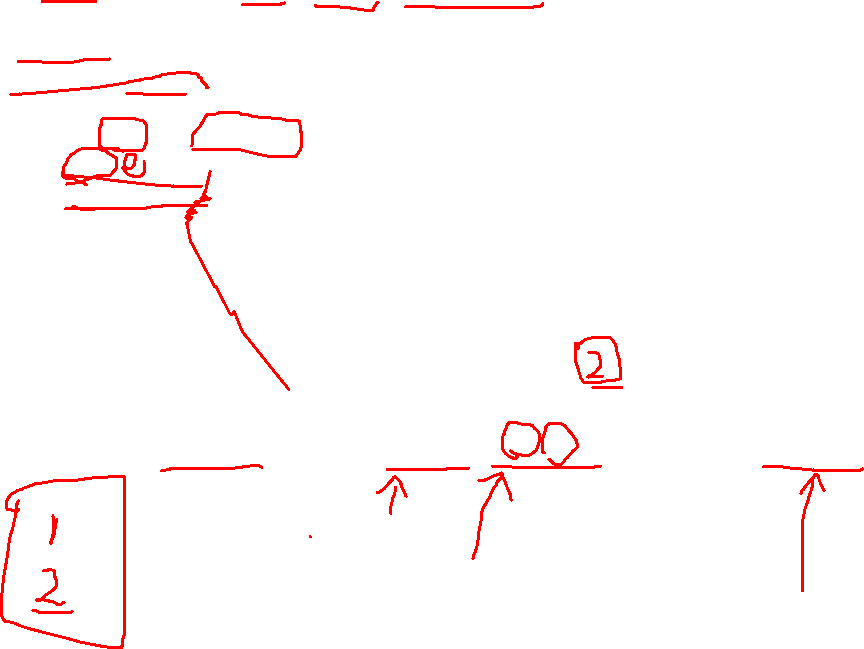 2
1
2